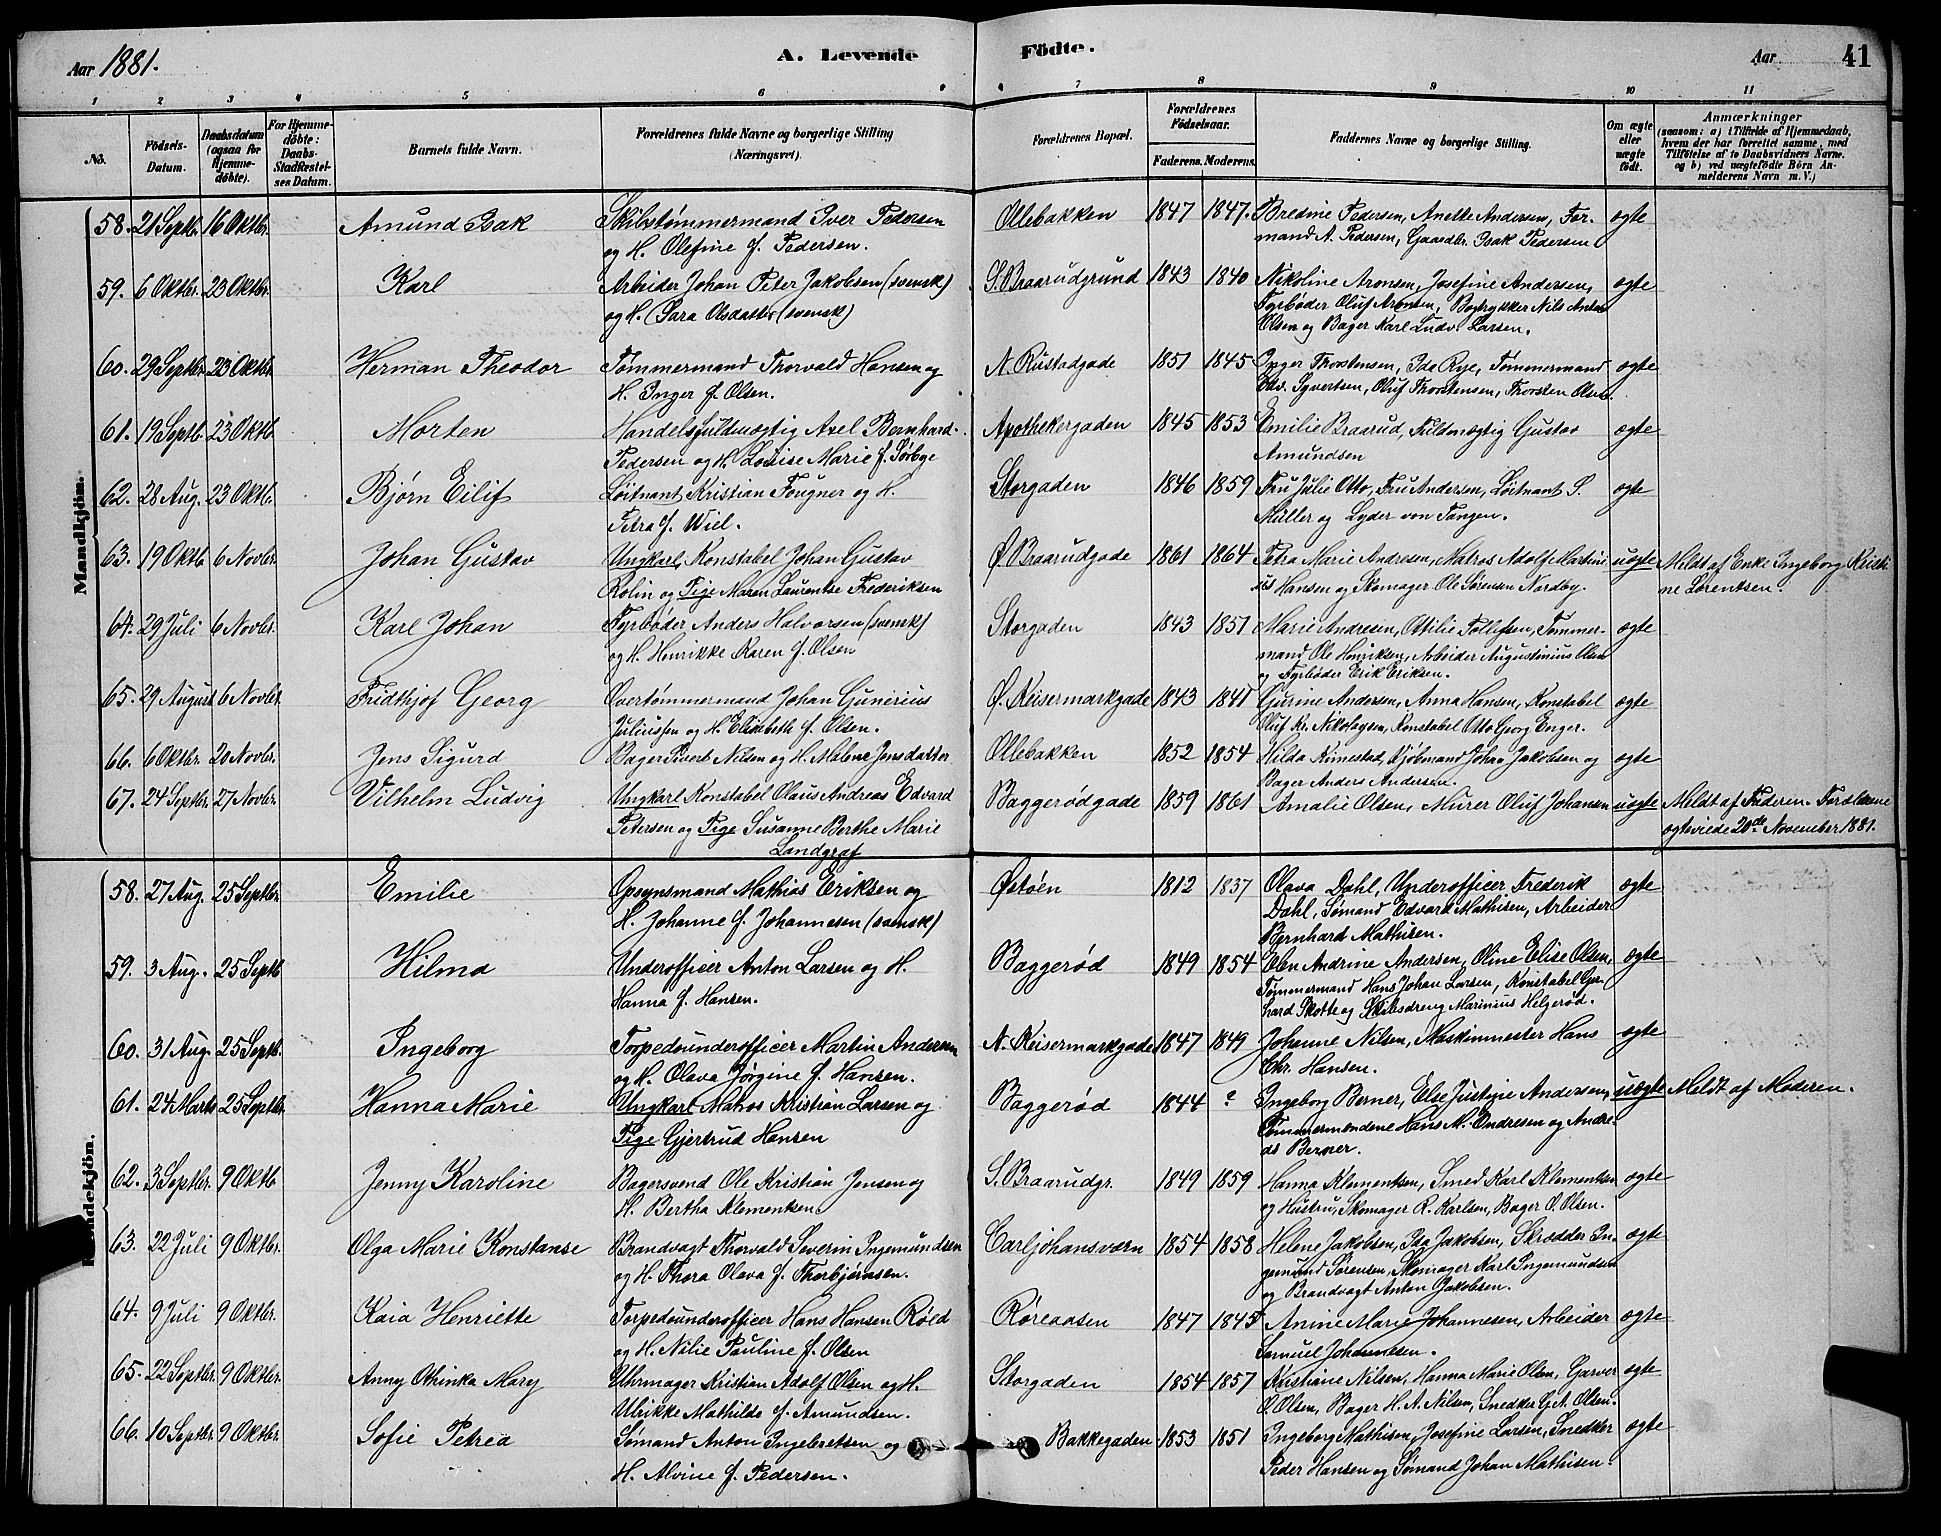 Aar 1881.
A. Levende
Födte.
Aar
41
1 2 3 4 5 6 7 8 9 10 11
No.
Födsels-
Datum.
Daabsdatum
(ogsaa for
Hjemme-
döbte).
For Hjemme-
döbte:
Daabs-
Stadfæstel-
ses Datum.
Barnets fulde Navn.
Forældrenes fulde Navne og borgerlige Stilling
(Næringsvei).
Forældrenes Bopæl.
Forældrenes
Födselsaar.
Faderens. Moderens.
Faddernes Navne og borgerlige Stilling.
Om ægte
eller
uægte
födt.
Anmærkninger
(saasom: a) i Tilfælde af Hjemmedaab,
hvem der har forrettet samme, med
Tilföielse af to Daabsvidners Navne.
og b) ved uægtefödte Börn An-
melderens Navn m. V.)
Mandkjön.
58. 21 Septbr. 16 Oktbr. Amund Isak Skibstømmermand Iver Pedersen Ollebakken 1847 1847. Bredine Pedersen, Anette Andersen, For- ægte
og H. Olefine f. Pedersen. mand A. Pedersen, Gaardbr. Isak Pedersen
59. 6 Oktbr. 23 Oktbr. Karl Arbeider Johan Peter Jakobsen (svensk) S. Braarudgrund 1843 1840 Nikoline Aronsen, Josefine Andersen, ægte
og H. Sara Olsdatter (svensk) Fyrbøder Oluf Aronsen, Bogtrykker Nils Anton
Olsen og Bager Karl Ludv. Larsen.
60. 29 Septbr. 23 Oktbr. Herman Theodor Tømmermand Thorvald Hansen og N. Rustadgade 1851 1845 Inger Thorstensen, Ida Rye, Tømmermand ægte
H. Inger f. Olsen. Edv. Syvertsen, Oluf Thorstensen, Thorsten Olsen.
61. 19 Septb. 23 Oktb. Morten Handelsfuldmægtig Axel Bernhard Apothekergaden 1845 1853 Emilie Braarud, Fuldmægtig Gustav ægte
Pedersen og H. Louise Marie f. Sørbye Amundsen
62. 28 Aug. 23 Oktb. Bjørn Eilif Løitnant Kristian Fougner og H. Storgaden 1846 1859 Fru Julie Otto, Fru Andersen, Løitnant S. ægte
Petra f. Wiel. Müller og Lyder von Tangen.
63. 19 Oktb. 6 Novbr. Johan Gustav Ungkarl Konstabel Johan Gustav Ø. Braarudgade 1861 1864 Petra Marie Andresen, Matros Adolf Martini- uægte Meldt af Enke Ingeborg Kristi-
Rolin og Pige Maren Laurentse Frederiksen us Hansen og Skomager Ole Sørensen Nordby. ne Lorentsen.
64. 29 Juli 6 Novbr. Karl Johan Fyrbøder Anders Halvorsen (svensk) Storgaden 1843 1851 Marie Andresen, Ottilie Tollefsen, Tømmer- ægte
og H. Henrikke Karen f. Olsen mand Ole Henriksen, Arbeider Augustinius Olsen
og Fyrbøder Erik Eriksen.
65. 29 August 6 Novbr. Fridthjof Georg Overtømmermand Johan Gunerius Ø. Keisermarkgade 1843 1841 Gurine Andersen, Anna Hansen, Konstabel ægte
Juliussen og H. Elisabeth f. Olsen. Oluf Kr. Nikolaysen, Konstabel Otto Georg Enger.
66. 6 Oktbr. 20 Novbr. Jens Sigurd Bager Sivert Nilsen og H. Malene Jensdatter Ollebakken 1852 1854 Hilda Rimestad, Kjøbmand Johan Jakobsen og ægte
Bager Anders Andersen.
67. 24 Septbr. 27 Novbr. Vilhelm Ludvig Ungkarl Konstabel Olaus Andreas Edvard Baggerødgade 1859 1861 Amalie Olsen, Murer Oluf Johansen uægte Meldt af Faderen. Forældrene
Petersen og Pige Susanne Berthe Marie ægteviede 20de November 1881.
Landgraf
58. 27 Aug. 25 Septbr. Emilie Opsynsmand Mathias Eriksen og Østøen 1812 1837 Olava Dahl, Underofficer Frederik ægte
H. Johanne f. Johannesen (svensk) Dahl, Sømand Edvard Mathisen, Arbeider
Bernhard Mathisen.
59. 3 Aug. 25 Septb. Hilma Underofficer Anton Larsen og H. Baggerød 1849 1854 Andrine Andersen, Oline Elise Olsen, ægte
Hanna f. Hansen. Tømmermand Hans Johan Larsen, Konstabel Ger-
hard Skotte og Skibsdreng Marinius Helgerød.
60. 31 Aug. 25 Septb. Ingeborg Torpedounderofficer Martin Andersen N. Keisermarkgade 1847 1849 Johanne Nilsen, Maskinmester Hans ægte
og H. Olava Jørgine f. Hansen. Chr. Hansen.
61. 24 Marts 25 Septbr. Hanna Marie Ungkarl Matros Kristian Larsen og Baggerød 1844 ? Ingeborg Berner, Else Justine Andersen, uægte Meldt af Moderen.
Pige Gjertrud Hansen Tømmermændene Hans M. Andresen og Andre-
as Berner.
62. 3 Septbr. 9 Oktb. Jenny Karoline Bagersvend Ole Kristian Jensen og S. Braarudgr. 1849 1859 Hanna Klementsen, Smed Karl Klementsen ægte
H. Bertha Klementsen. og Hustru, Skomager R. Karlsen, Bager O. Olsen.
63. 22 Juli 9 Oktbr. Olga Marie Konstanse Brandvagt Thorvald Severin Ingemundsen Carljohansværn 1854 1858 Helene Jakobsen, Ida Jakobsen, Skrædder In- ægte
og H. Thora Olava f. Thorbjørnsen. gemund Sørensen, Skomager Karl Ingemundsen
og Brandvagt Anton Jakobsen.
64. 9 Juli 9 Oktbr. Kaia Henriette Torpedounderofficer Hans Hansen Røed Røreaasen 1847 1845 Anine Marie Johannesen, Arbeider ægte
og H. Nilie Pauline f. Olsen Samuel Johannesen.
65. 22 Septbr. 9 Oktbr. Anny Othinka Mary Uhrmager Kristian Adolf Olsen og H. Storgaden 1854 1857 Kristiane Nilsen, Hanna Marie Olsen, Garver ægte
Ulrikke Mathilde f. Amundsen. O. Olsen, Bager H. A. Nilsen, Snedker G. A. Olsen.
66. 10 Septbr. 9 Oktbr. Sofie Petrea Sømand Anton Ingebretsen og Bakkegaden 1853 1851 Ingeborg Mathisen, Josefine Larsen, Snedker ægte
H. Alvine f. Pedersen. Peder Hansen og Sømand Johan Mathisen.